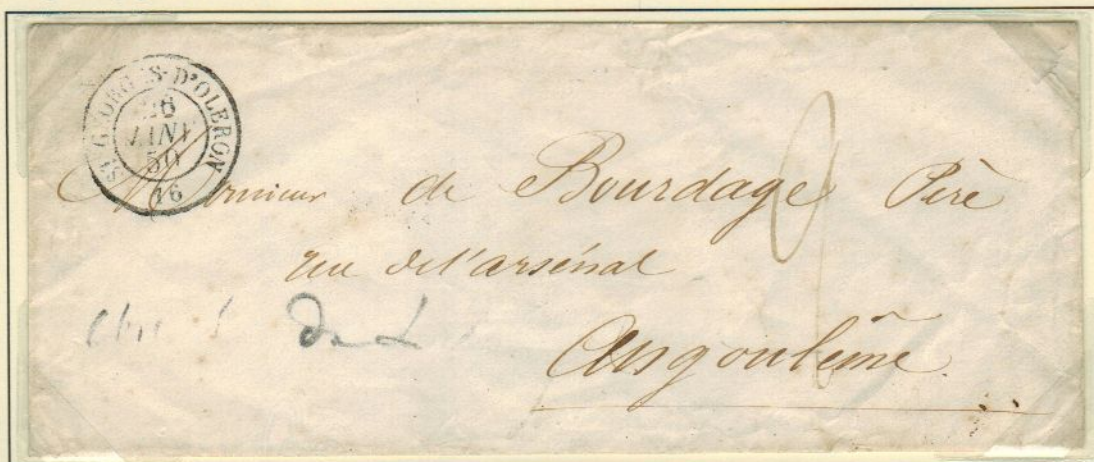 ST GEORGES-D'OLERON
26
JANV
50
16
Monsieur de Bourdage Père
rue de l'arsénal
Angoulême